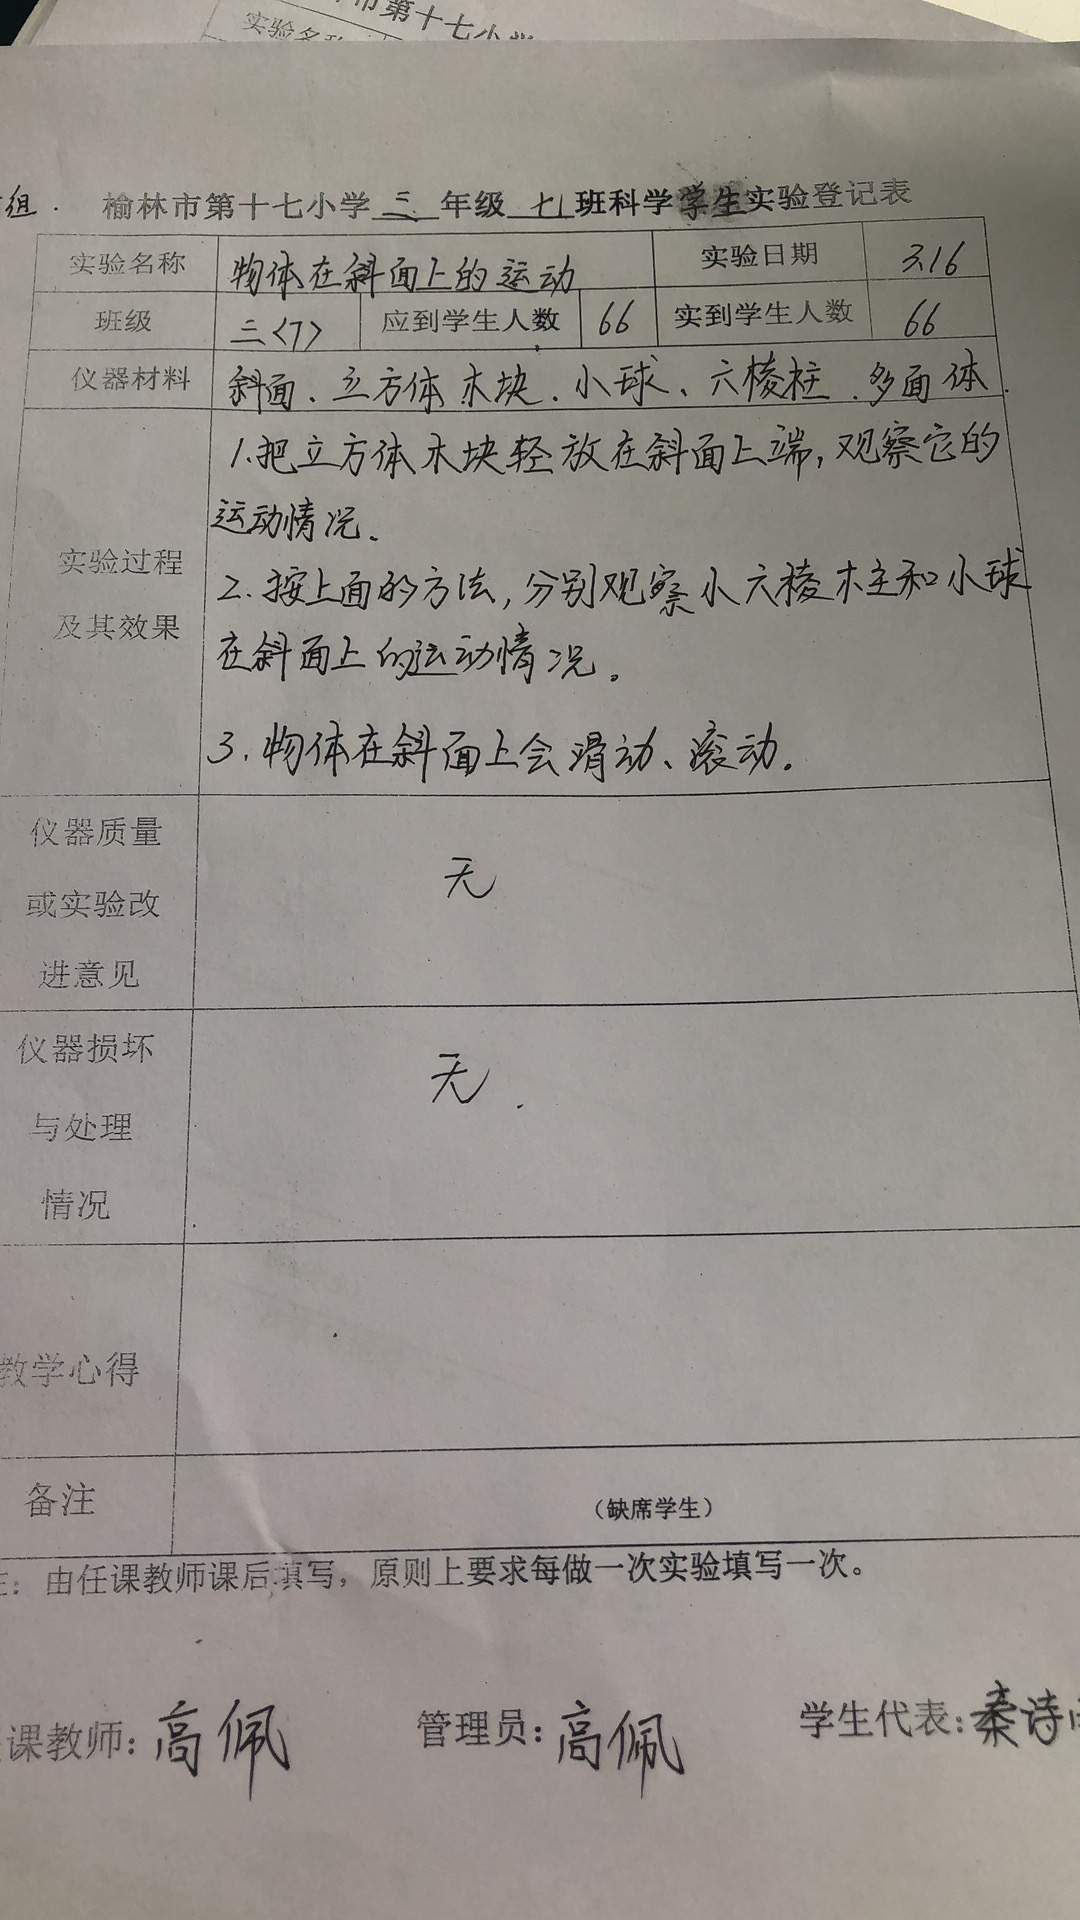 市第十七小学
实验名称
组.
榆林市第十七小学 三 年级 七 班科学学生实验登记表
实验名称 物体在斜面上的运动 实验日期 3.16
班级 三<7> 应到学生人数 66 实到学生人数 66
仪器材料 斜面、立方体木块、小球、六棱柱、多面体.
1.把立方体木块轻放在斜面上端,观察它的
运动情况.
实验过程
及其效果
2.按上面的方法,分别观察小六棱木主和小球
在斜面上的运动情况。
3.物体在斜面上会滑动、滚动.
仪器质量
或实验改
进意见
无
仪器损坏
与处理
情况
无.
教学心得
备注 （缺席学生）
注：由任课教师课后填写，原则上要求每做一次实验填写一次。
课教师：高佩 管理员：高佩 学生代表：秦诗